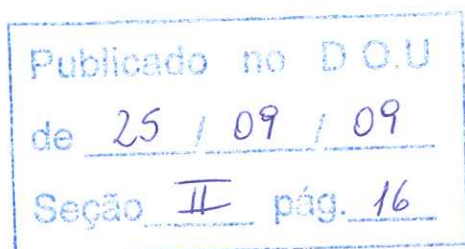 Publicado no D O.U
de 25 / 09 / 09
Seção II pág. 16